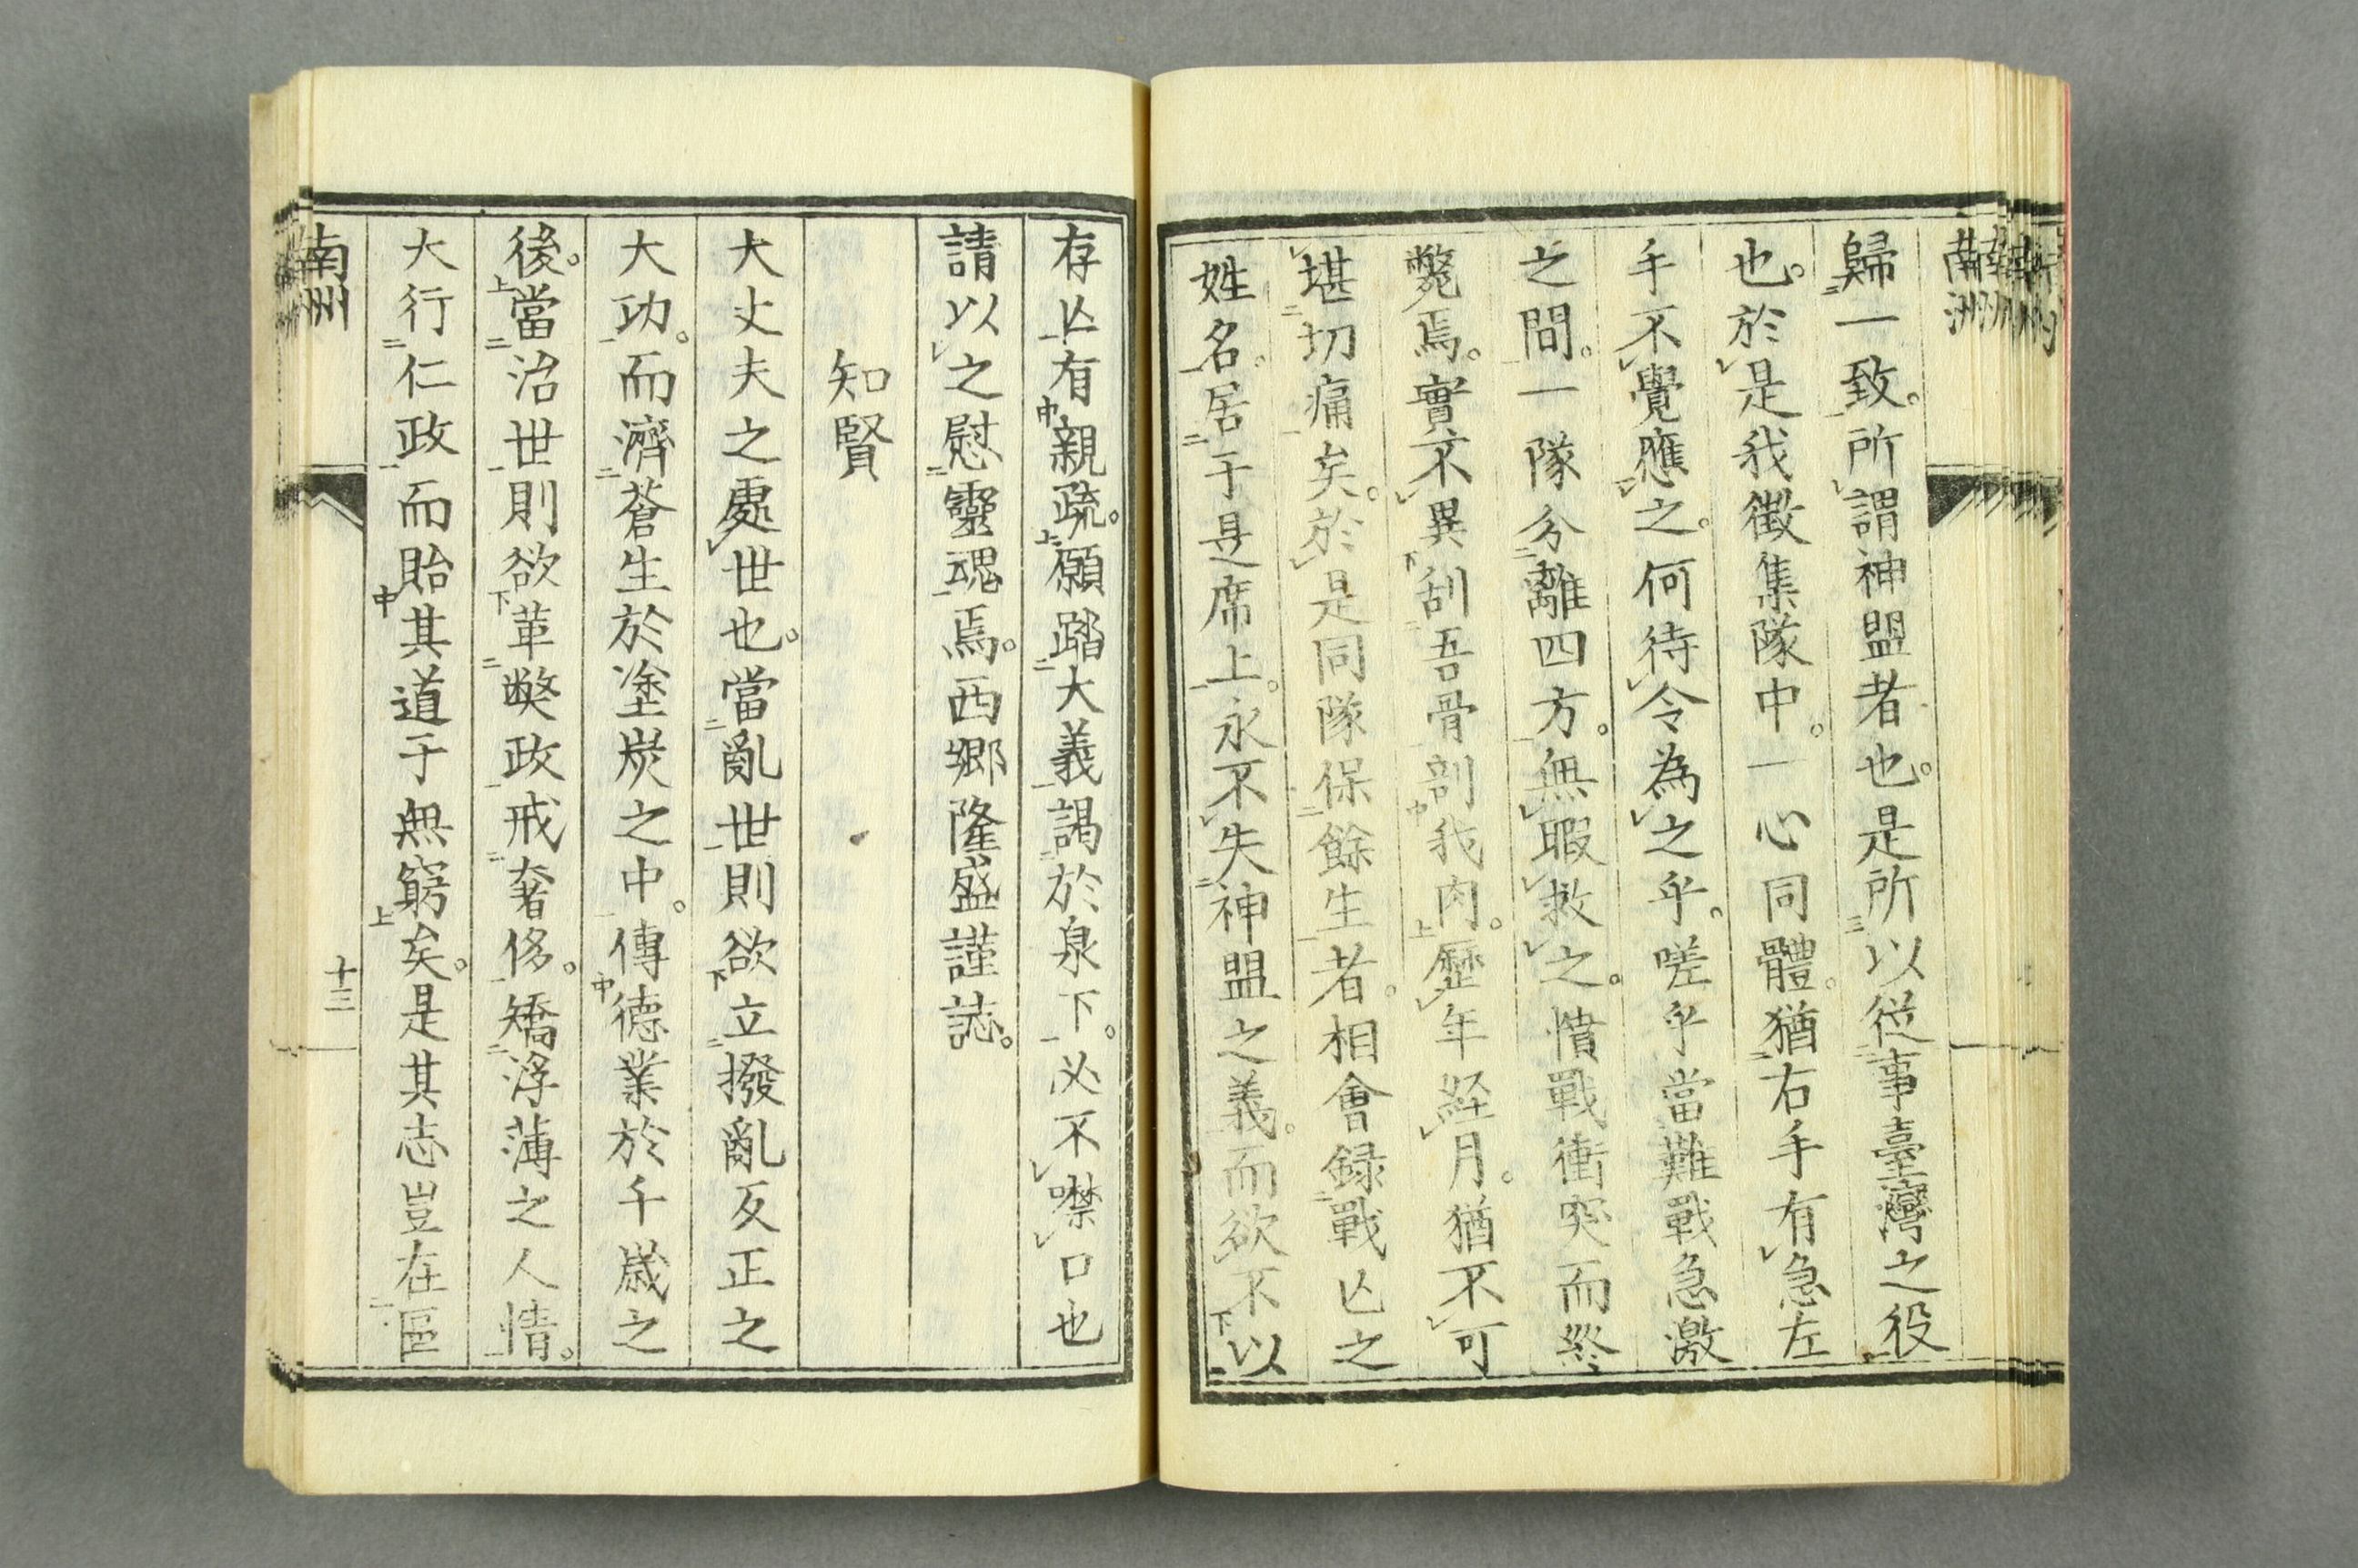 南洲
歸一致。所謂神盟者也。是所以從事臺灣之役
也。於是我徵集隊中。一心同體。猶右手有急左
手不覺應之。何待令為之乎。嗟乎當難戰急激
之間。一隊分離四方。無暇救之。憤戰衝突而終
斃焉。實不異刮吾骨剖我肉。歷年経月。猶不可
堪切痛矣。於是同隊保餘生者。相會錄戰亾之
姓名。居于是席上。永不失神盟之義。而欲不以
存亾有親疏。願踏大義謁於泉下。必不噤口也
請以之慰靈魂焉。西郷隆盛謹誌。
知賢
大丈夫之處世也。當亂世則欲立撥亂反正之
大功。而濟蒼生於塗炭之中。傳德業於千歲之
後。當治世則欲革弊政戒奢侈。矯浮薄之人情。
大行仁政而貽其道于無窮矣。是其志豈在區
南洲
十三